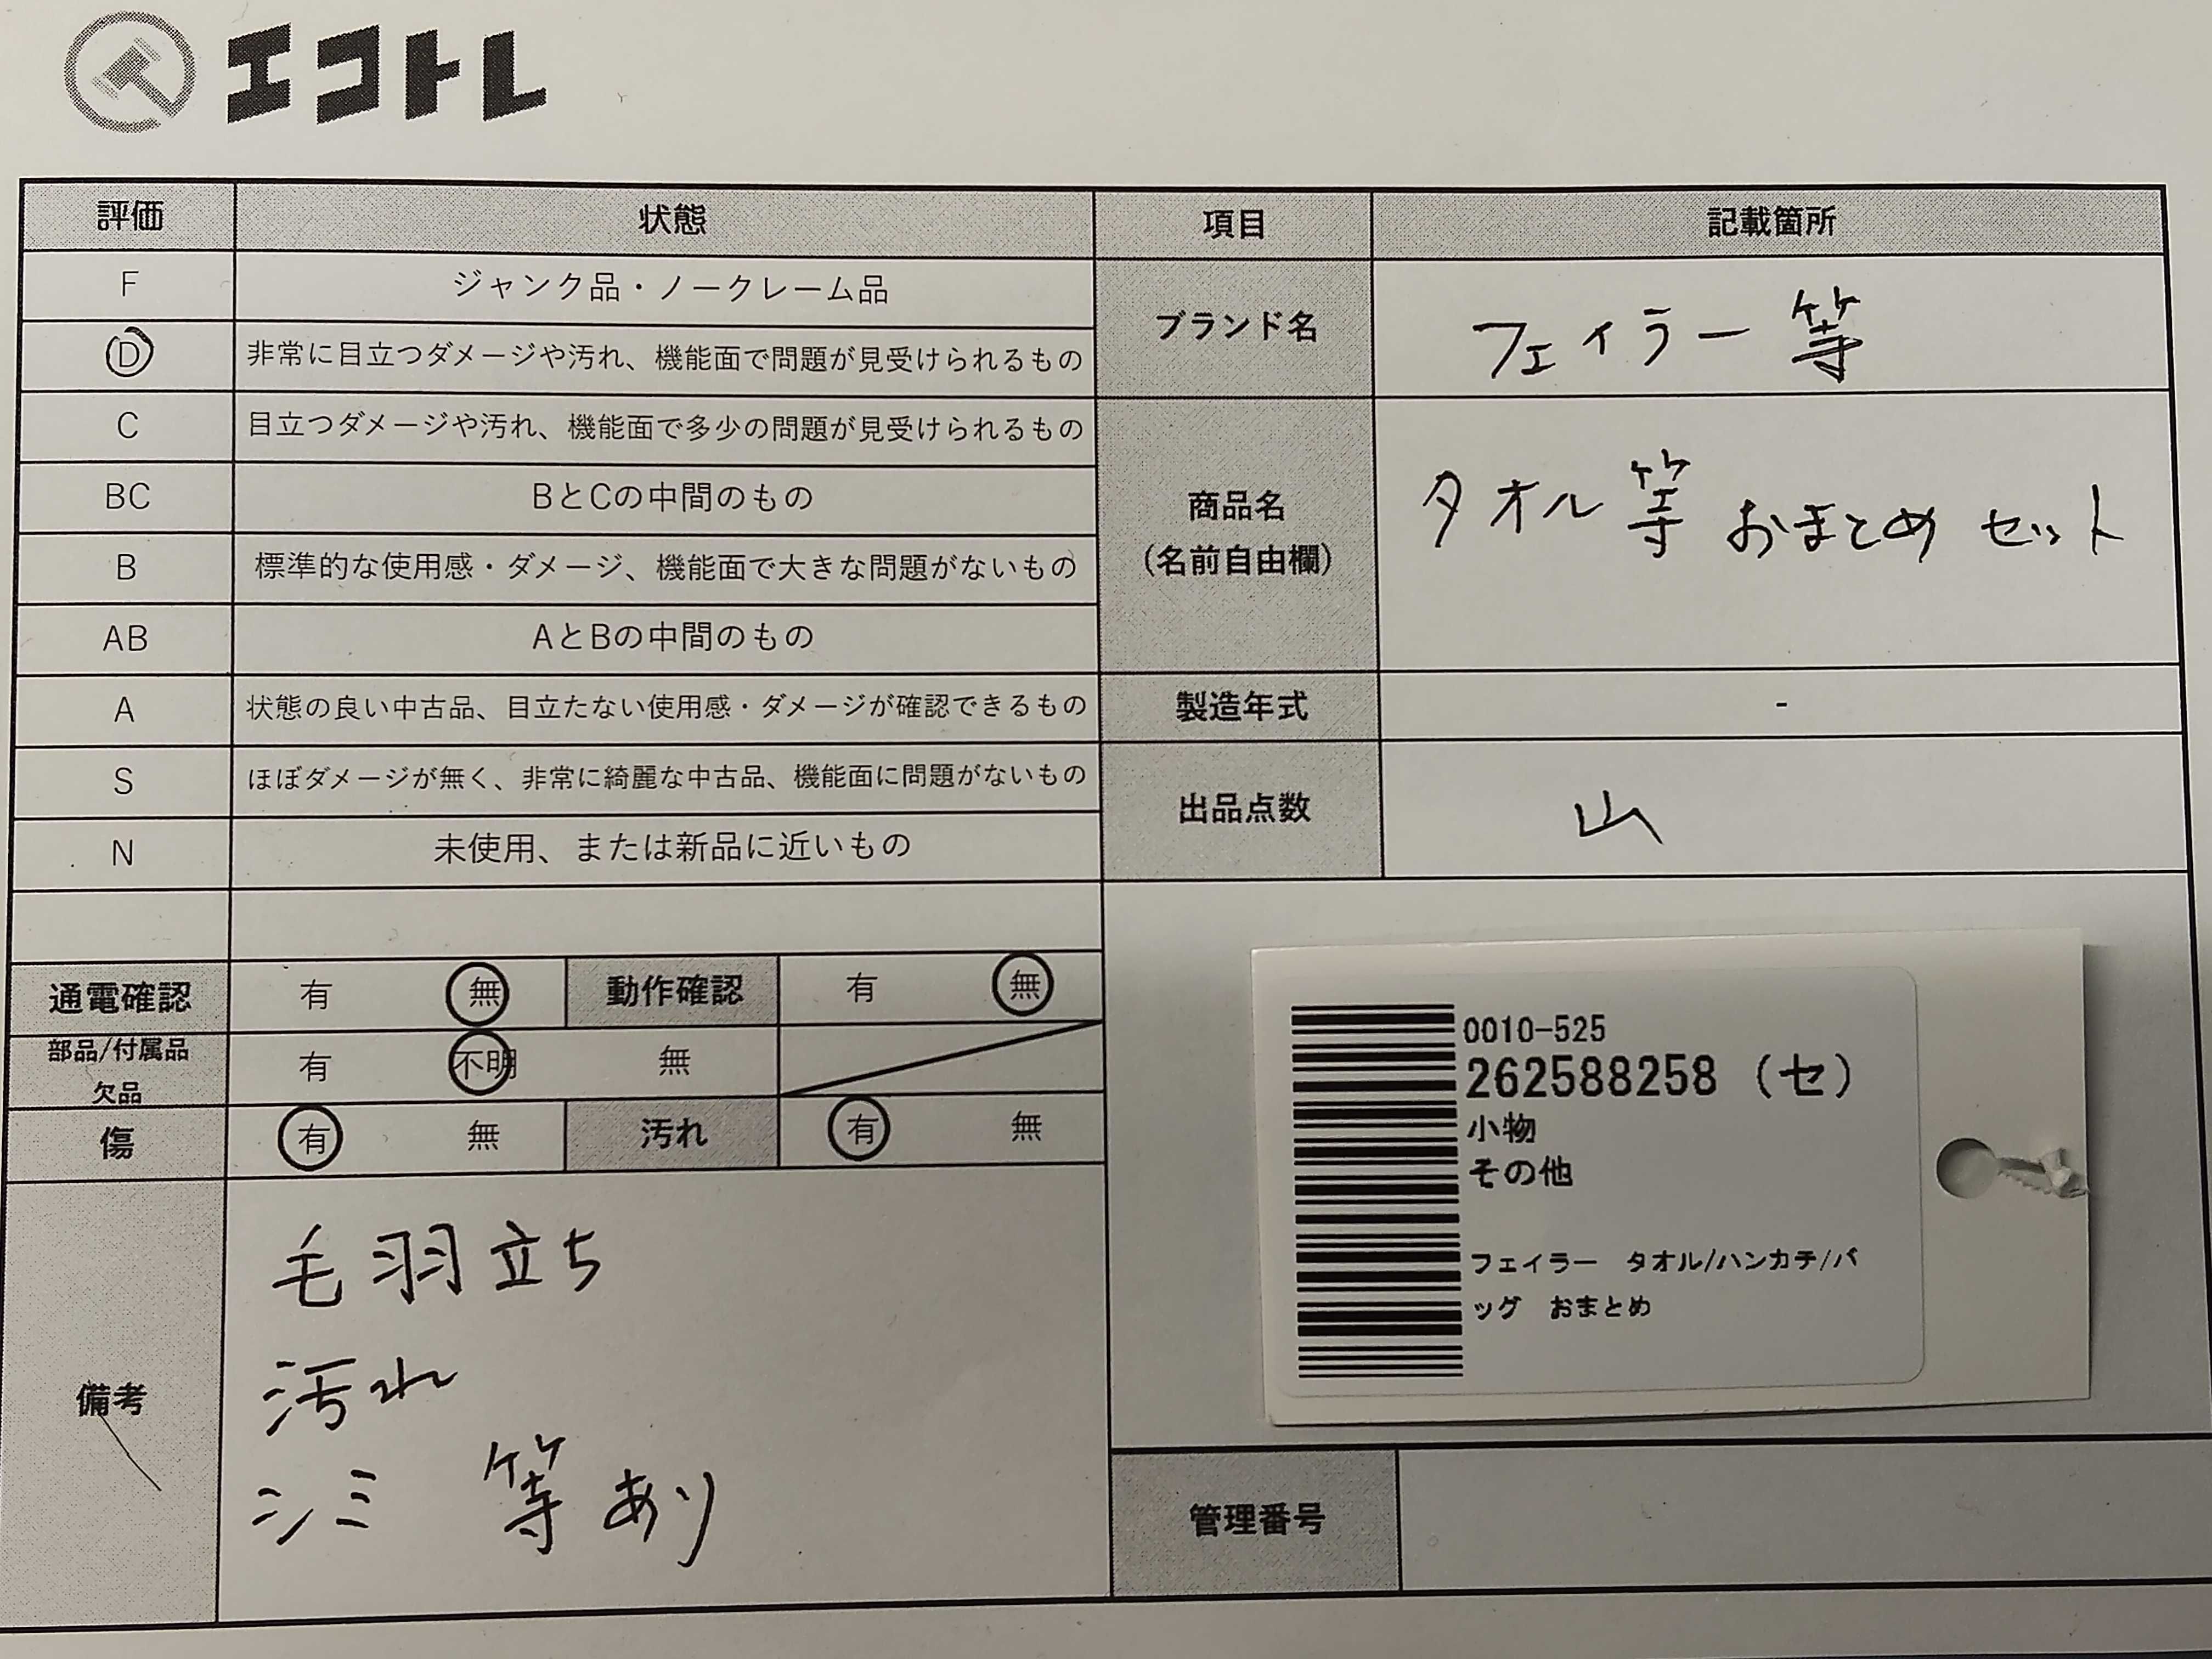 エコトレ
評価 状態 項目 記載箇所
F ジャンク品・ノークレーム品
D 非常に目立つダメージや汚れ、機能面で問題が見受けられるもの
C 目立つダメージや汚れ、機能面で多少の問題が見受けられるもの
BC BとCの中間のもの
B 標準的な使用感・ダメージ、機能面で大きな問題がないもの
AB AとBの中間のもの
A 状態の良い中古品、目立たない使用感・ダメージが確認できるもの
S ほぼダメージが無く、非常に綺麗な中古品、機能面に問題がないもの
N 未使用、または新品に近いもの
ブランド名 フェイラー等
商品名
(名前自由欄)
タオル等 おまとめ セット
製造年式 -
出品点数 山
通電確認 有 無 動作確認 有 無
部品/付属品
欠品
有 不明 無
傷 有 無 汚れ 有 無
備考
毛羽立ち
汚れ
シミ 等あり
0010-525
262588258 (セ)
小物
その他
フェイラー タオル/ハンカチ/バ
ッグ おまとめ
管理番号